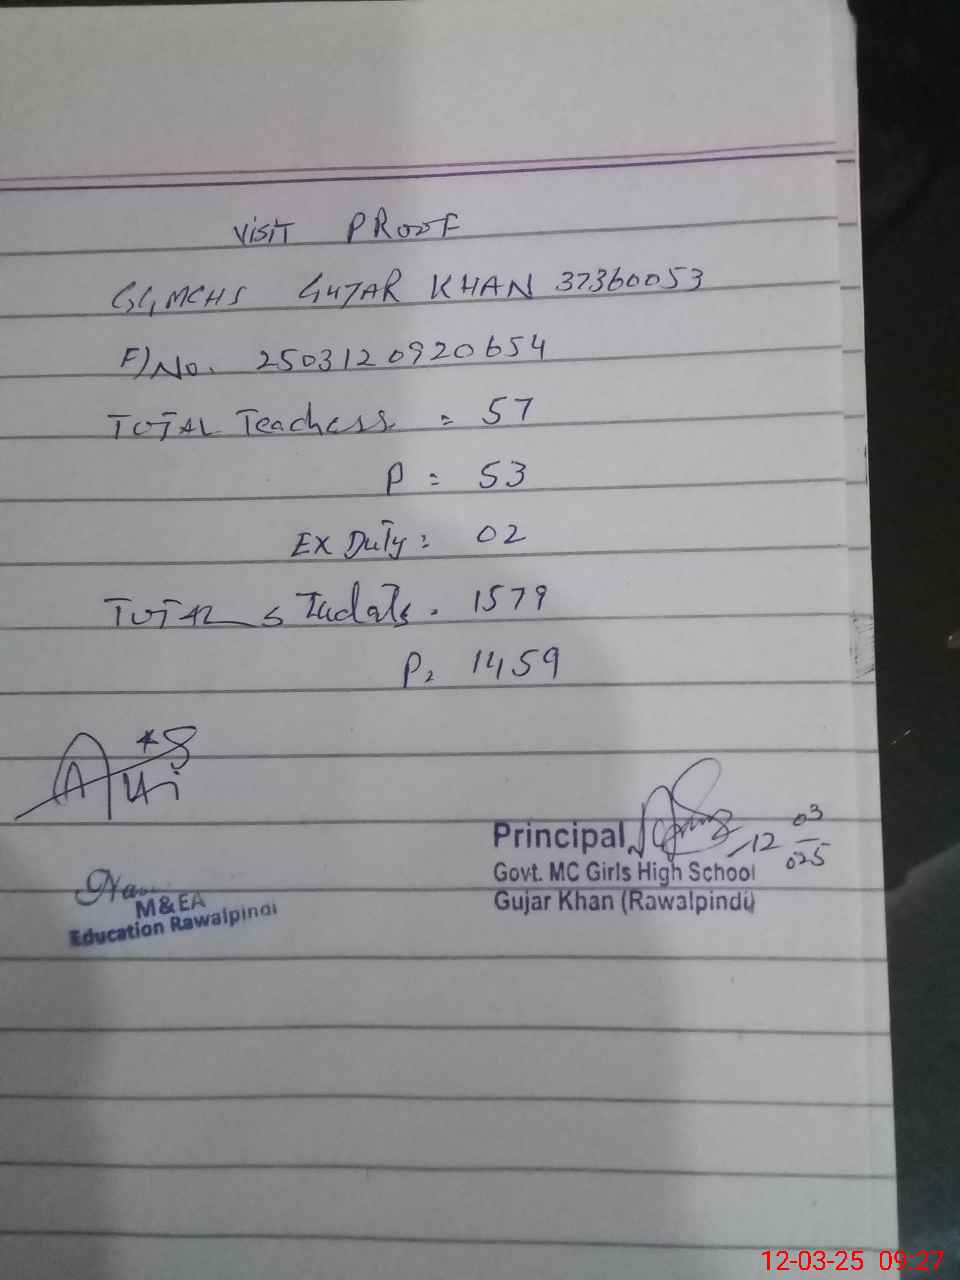 Visit PROOF
GGMCHS GUJAR KHAN 37360053
F) No. 2503120920654
TOTAL Teachers = 57
P = 53
EX Duty = 02
TOTAL Studats = 1579
P = 1459
Principal
12 03
025
Govt. MC Girls High School
Gujar Khan (Rawalpindi)
M&EA
Education Rawalpindi
12-03-25 09:27